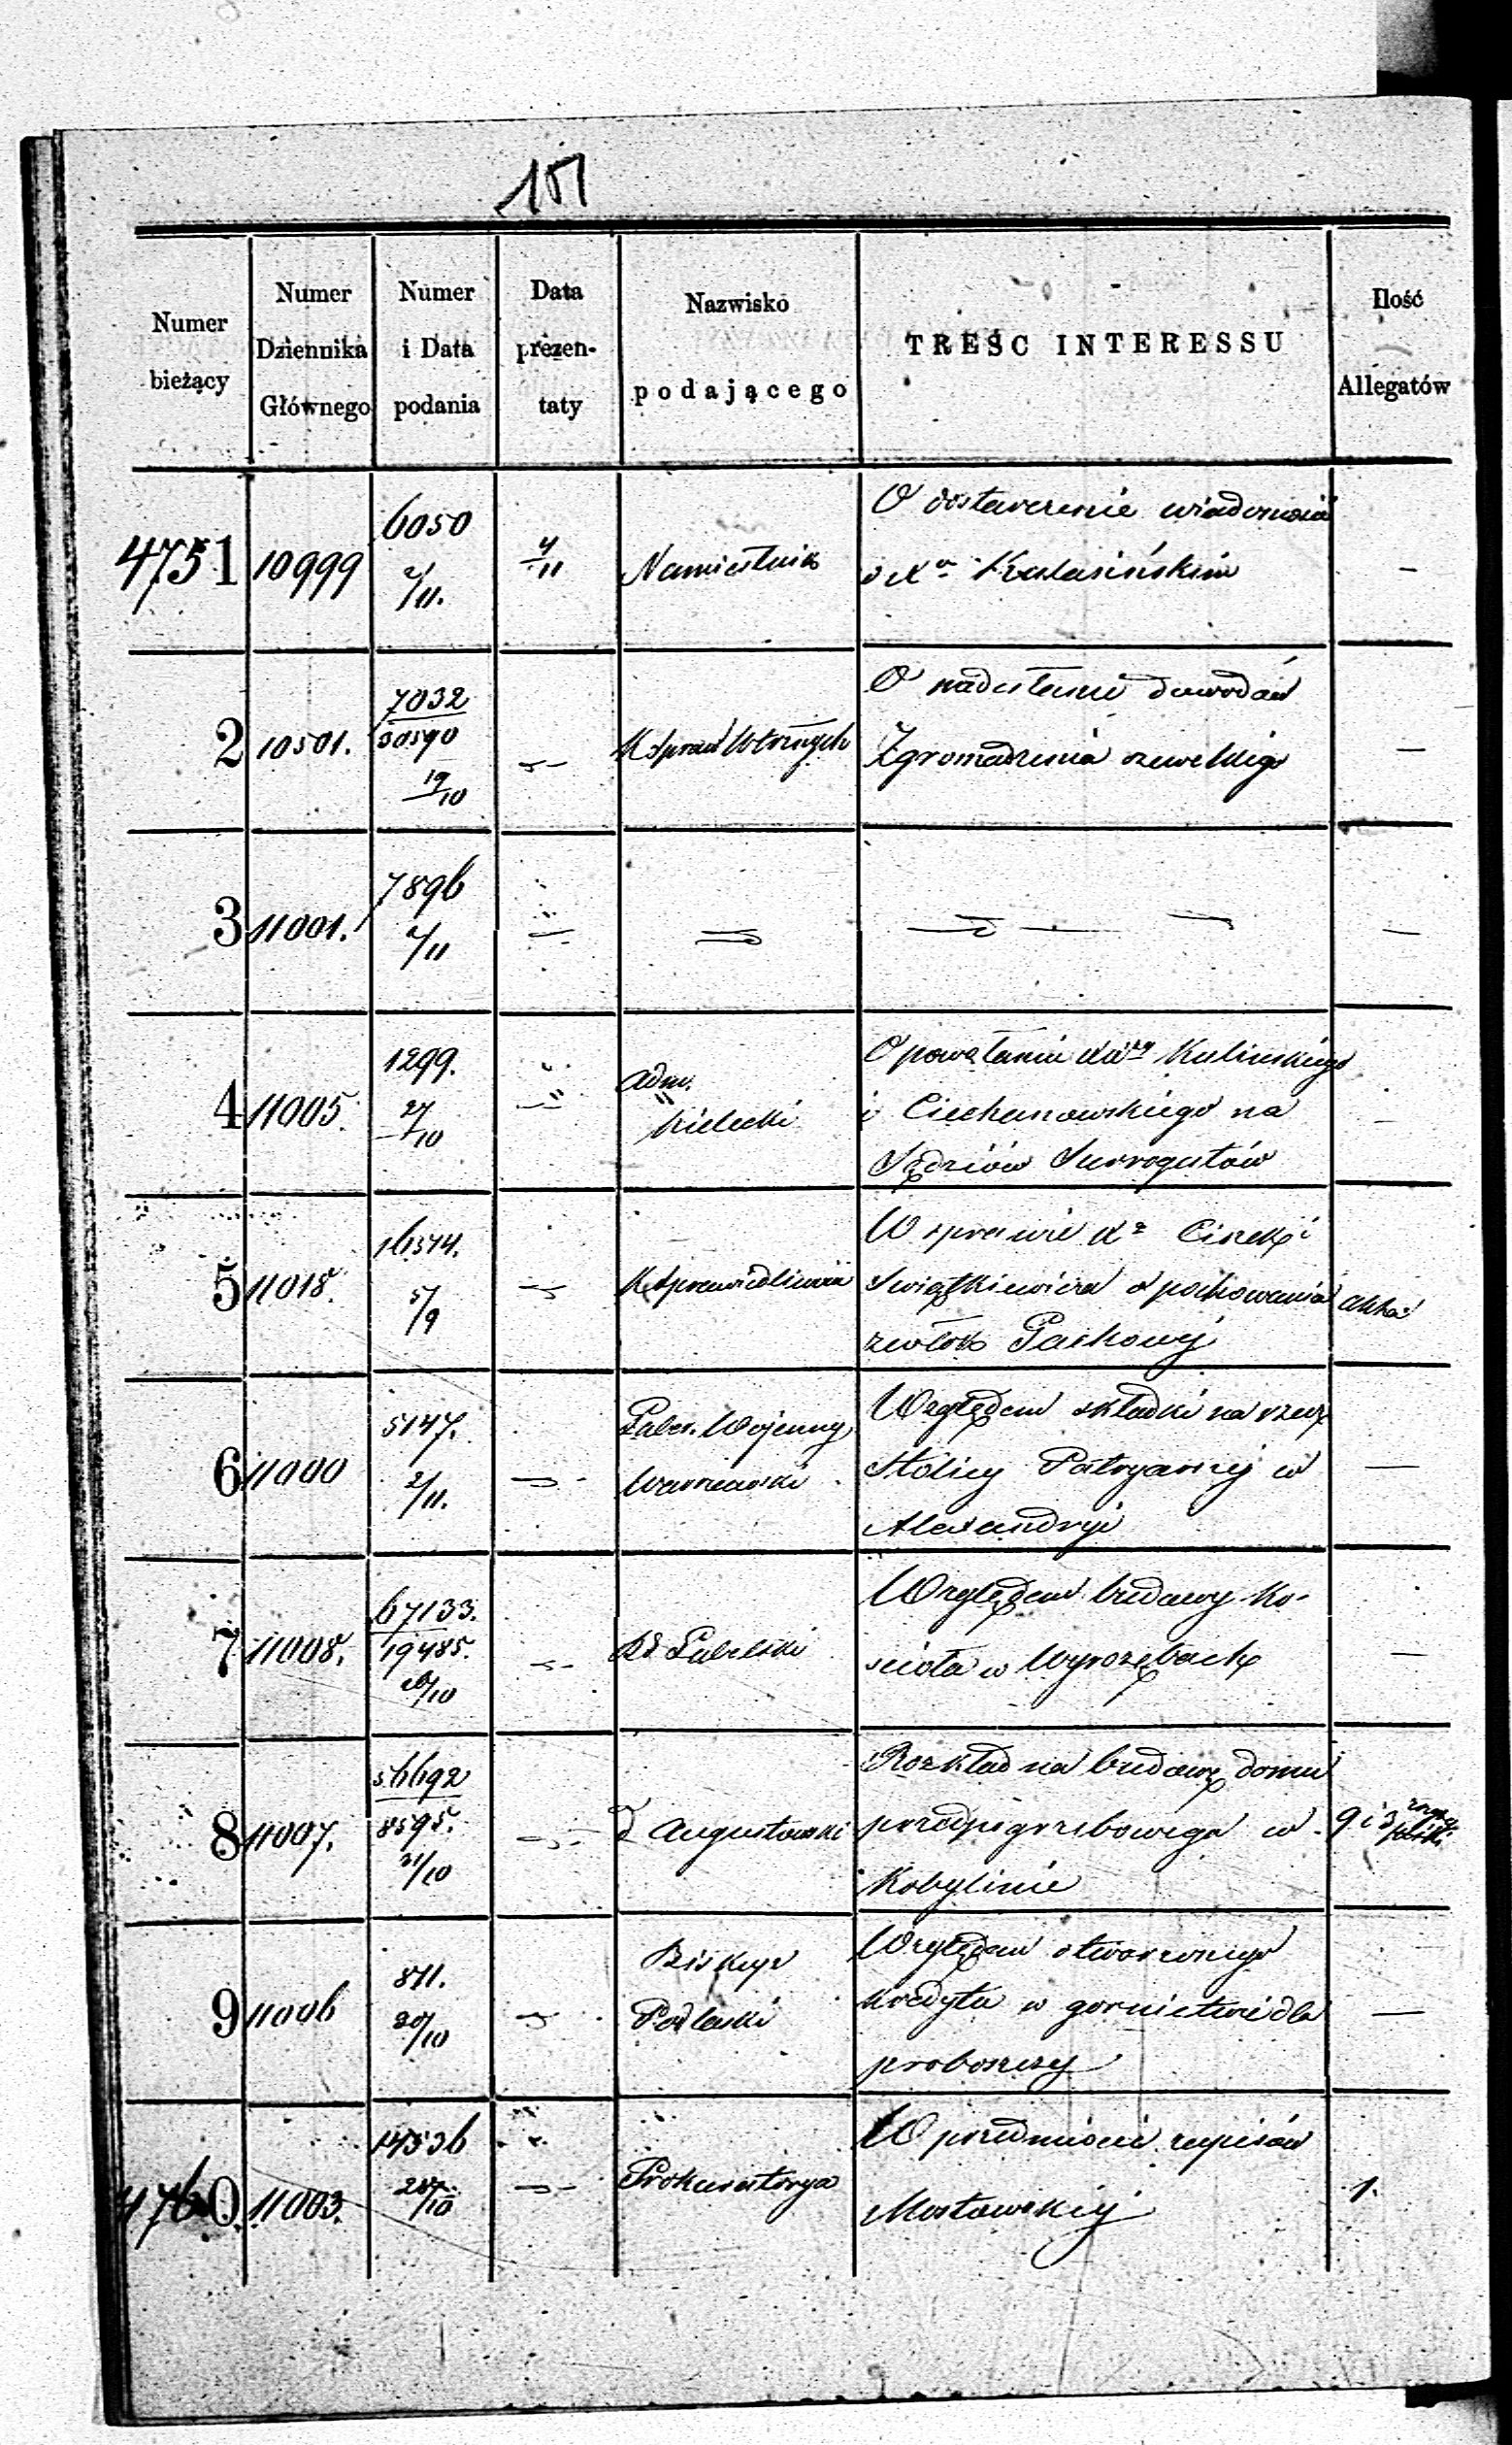 151
Numer bieżący
Numer Dziennika Głównego
Numer i Data podania
Data prezentaty
Nazwisko podającego
TREŚĆ INTERESSU
Ilość Allegatów
4751 10999 6050 2/11. 4/11 Namiestnik
O dostarczenie wiadomości
o Xu
—
2 10501. 7032 30590 19/10 K Spraw Wewnych
O nadesłanie dowodów
Zgromadzenia
—
3 11001. 7896 2/11
—
4 11005. 1299. 27/10 Adm. Kielecki
O powołaniu Kulinskiego
i Ciechanowskiego na
Sędziów Surrogatów
5 11018. 16574. 5/9 K Sprawiedliwości
W sprawie Xa i
Swiątkiewicza o pochowania
zwłok akta
6 11000 5147. 2/11. Guber. Wojenny Warszawski
Względem składki na rzecz
Stolicy w
Alexandryi
—
7 11008. 67133. 19485. 26/10 Rd Lubelski
Względem budowy ko-
scioła w Wyrozębach
—
8 11007. 56692 8595. 31/10 d Augustowski
Rozkład na budowę domu
przedpogrzebowego w
Kobylinie
9 i 3
9 11006 871. 20/10 Biskup Podlaski
Względem otworzonego
kredytu w gornictwie dla
proboszczy
—
4760. 11003. 14536 Prokuratorya
W przedmiocie zapisów
Mostowskiej
1.